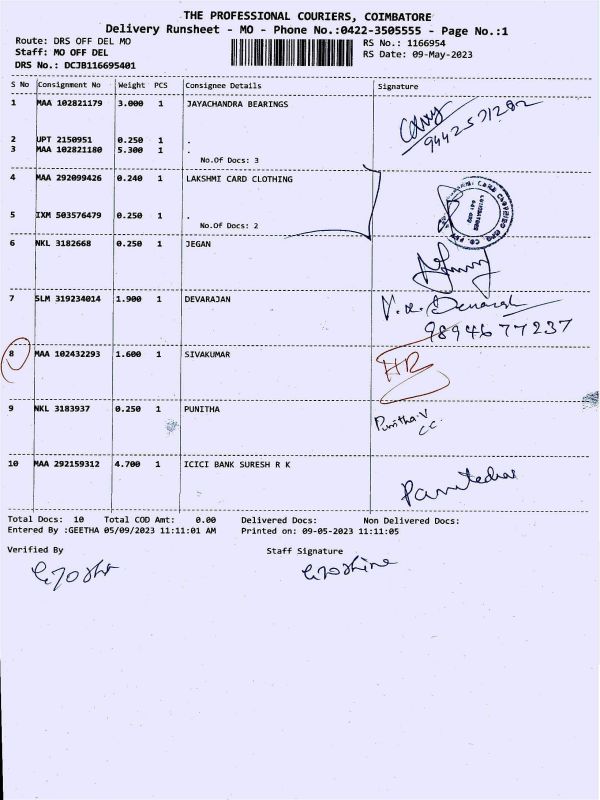 THE PROFESSIONAL COURIERS, COIMBATORE
Delivery Runsheet - MO - Phone No.:0422-3505555 - Page No.:1
Route: DRS OFF DEL MO
Staff: MO OFF DEL
DRS No.: DCJB116695401
RS No.: 1166954
RS Date: 09-May-2023
S No Consignment No Weight PCS Consignee Details Signature
1 MAA 102821179 3.000 1 JAYACHANDRA BEARINGS
2 UPT 2150951 0.250 1 .
3 MAA 102821180 5.300 1 .
No.Of Docs: 3
4 MAA 292099426 0.240 1 LAKSHMI CARD CLOTHING
5 IXM 503576479 0.250 1 .
No.Of Docs: 2
6 NKL 3182668 0.250 1 JEGAN
7 SLM 319234014 1.900 1 DEVARAJAN
9894677237
8 MAA 102432293 1.600 1 SIVAKUMAR
9 NKL 3183937 0.250 1 PUNITHA Punitha.V
CC.
10 MAA 292159312 4.700 1 ICICI BANK SURESH R K
Total Docs: 10 Total COD Amt: 0.00 Delivered Docs: Non Delivered Docs:
Entered By :GEETHA 05/09/2023 11:11:01 AM Printed on: 09-05-2023 11:11:05
Verified By Staff Signature